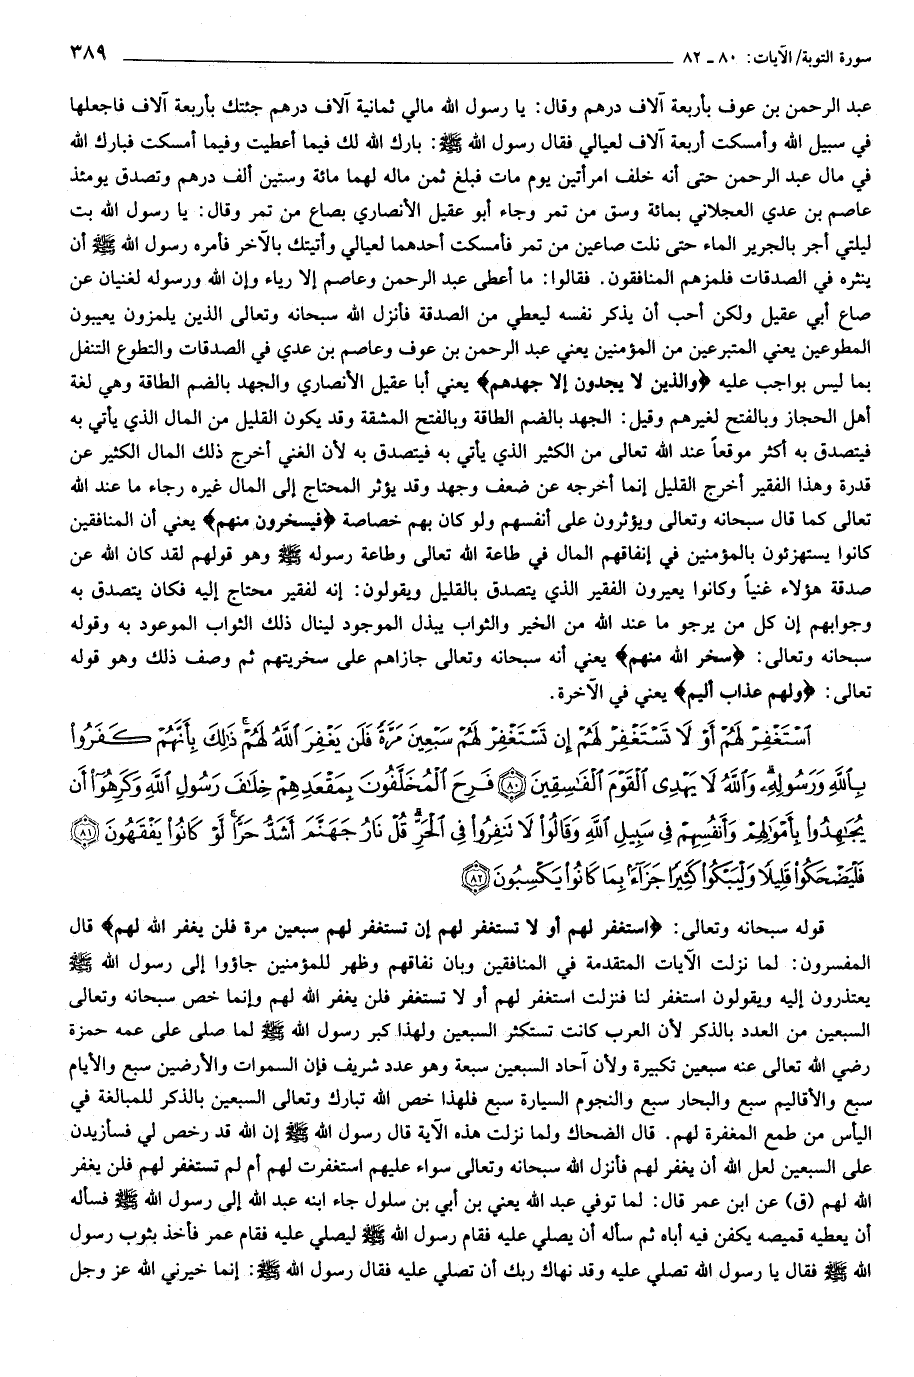 سورة التوبة/ الآيات: ٨٠ ـ ٨٢ ٣٨٩
عبد الرحمن بن عوف بأربعة آلاف درهم وقال: يا رسول الله مالي ثمانية آلاف درهم جئتك بأربعة آلاف فاجعلها
في سبيل الله وأمسكت أربعة آلاف لعيالي فقال رسول الله ﷺ: بارك الله لك فيما أعطيت وفيما أمسكت فبارك الله
في مال عبد الرحمن حتى أنه خلف امرأتين يوم مات فبلغ ثمن ماله لهما مائة وستين ألف درهم وتصدق يومئذ
عاصم بن عدي العجلاني بمائة وسق من تمر وجاء أبو عقيل الأنصاري بصاع من تمر وقال: يا رسول الله بت
ليلتي أجر بالجرير الماء حتى نلت صاعين من تمر فأمسكت أحدهما لعيالي وأتيتك بالآخر فأمره رسول الله ﷺ أن
ينثره في الصدقات فلمزهم المنافقون. فقالوا: ما أعطى عبد الرحمن وعاصم إلا رياء وإن الله ورسوله لغنيان عن
صاع أبي عقيل ولكن أحب أن يذكر نفسه ليعطي من الصدقة فأنزل الله سبحانه وتعالى الذين يلمزون يعيبون
المطوعين يعني المتبرعين من المؤمنين يعني عبد الرحمن بن عوف وعاصم بن عدي في الصدقات والتطوع التنفل
بما ليس بواجب عليه ﴿والذين لا يجدون إلا جهدهم﴾ يعني أبا عقيل الأنصاري والجهد بالضم الطاقة وهي لغة
أهل الحجاز وبالفتح لغيرهم وقيل: الجهد بالضم الطاقة وبالفتح المشقة وقد يكون القليل من المال الذي يأتي به
فيتصدق به أكثر موقعاً عند الله تعالى من الكثير الذي يأتي به فيتصدق به لأن الغني أخرج ذلك المال الكثير عن
قدرة وهذا الفقير أخرج القليل إنما أخرجه عن ضعف وجهد وقد يؤثر المحتاج إلى المال غيره رجاء ما عند الله
تعالى كما قال سبحانه وتعالى ويؤثرون على أنفسهم ولو كان بهم خصاصة ﴿فيسخرون منهم﴾ يعني أن المنافقين
كانوا يستهزئون بالمؤمنين في إنفاقهم المال في طاعة الله تعالى وطاعة رسوله ﷺ وهو قولهم لقد كان الله عن
صدقة هؤلاء غنياً وكانوا يعيرون الفقير الذي يتصدق بالقليل ويقولون: إنه لفقير محتاج إليه فكان يتصدق به
وجوابهم إن كل من يرجو ما عند الله من الخير والثواب يبذل الموجود لينال ذلك الثواب الموعود به وقوله
سبحانه وتعالى: ﴿سخر الله منهم﴾ يعني أنه سبحانه وتعالى جازاهم على سخريتهم ثم وصف ذلك وهو قوله
تعالى: ﴿ولهم عذاب أليم﴾ يعني في الآخرة.
ٱسْتَغْفِرْ لَهُمْ أَوْ لَا تَسْتَغْفِرْ لَهُمْ إِن تَسْتَغْفِرْ لَهُمْ سَبْعِينَ مَرَّةً فَلَن يَغْفِرَ ٱللَّهُ لَهُمْ ۚ ذَٰلِكَ بِأَنَّهُمْ كَفَرُوا۟
بِٱللَّهِ وَرَسُولِهِۦ ۗ وَٱللَّهُ لَا يَهْدِى ٱلْقَوْمَ ٱلْفَٰسِقِينَ ﴿٨٠﴾ فَرِحَ ٱلْمُخَلَّفُونَ بِمَقْعَدِهِمْ خِلَٰفَ رَسُولِ ٱللَّهِ وَكَرِهُوٓا۟ أَن
يُجَٰهِدُوا۟ بِأَمْوَٰلِهِمْ وَأَنفُسِهِمْ فِى سَبِيلِ ٱللَّهِ وَقَالُوا۟ لَا تَنفِرُوا۟ فِى ٱلْحَرِّ ۗ قُلْ نَارُ جَهَنَّمَ أَشَدُّ حَرًّا ۚ لَّوْ كَانُوا۟ يَفْقَهُونَ ﴿٨١﴾
فَلْيَضْحَكُوا۟ قَلِيلًا وَلْيَبْكُوا۟ كَثِيرًا جَزَآءًۢ بِمَا كَانُوا۟ يَكْسِبُونَ ﴿٨٢﴾
قوله سبحانه وتعالى: ﴿استغفر لهم أو لا تستغفر لهم إن تستغفر لهم سبعين مرة فلن يغفر الله لهم﴾ قال
المفسرون: لما نزلت الآيات المتقدمة في المنافقين وبان نفاقهم وظهر للمؤمنين جاؤوا إلى رسول الله ﷺ
يعتذرون إليه ويقولون استغفر لنا فنزلت استغفر لهم أو لا تستغفر فلن يغفر الله لهم وإنما خص سبحانه وتعالى
السبعين من العدد بالذكر لأن العرب كانت تستكثر السبعين ولهذا كبر رسول الله ﷺ لما صلى على عمه حمزة
رضي الله تعالى عنه سبعين تكبيرة ولأن آحاد السبعين سبعة وهو عدد شريف فإن السموات والأرضين سبع والأيام
سبع والأقاليم سبع والبحار سبع والنجوم السيارة سبع فلهذا خص الله تبارك وتعالى السبعين بالذكر للمبالغة في
اليأس من طمع المغفرة لهم. قال الضحاك ولما نزلت هذه الآية قال رسول الله ﷺ إن الله قد رخص لي فسأزيدن
على السبعين لعل الله أن يغفر لهم فأنزل الله سبحانه وتعالى سواء عليهم استغفرت لهم أم لم تستغفر لهم فلن يغفر
الله لهم (ق) عن ابن عمر قال: لما توفي عبد الله يعني بن أبي بن سلول جاء ابنه عبد الله إلى رسول الله ﷺ فسأله
أن يعطيه قميصه يكفن فيه أباه ثم سأله أن يصلي عليه فقام رسول الله ﷺ ليصلي عليه فقام عمر فأخذ بثوب رسول
الله ﷺ فقال يا رسول الله تصلي عليه وقد نهاك ربك أن تصلي عليه فقال رسول الله ﷺ: إنما خيرني الله عز وجل